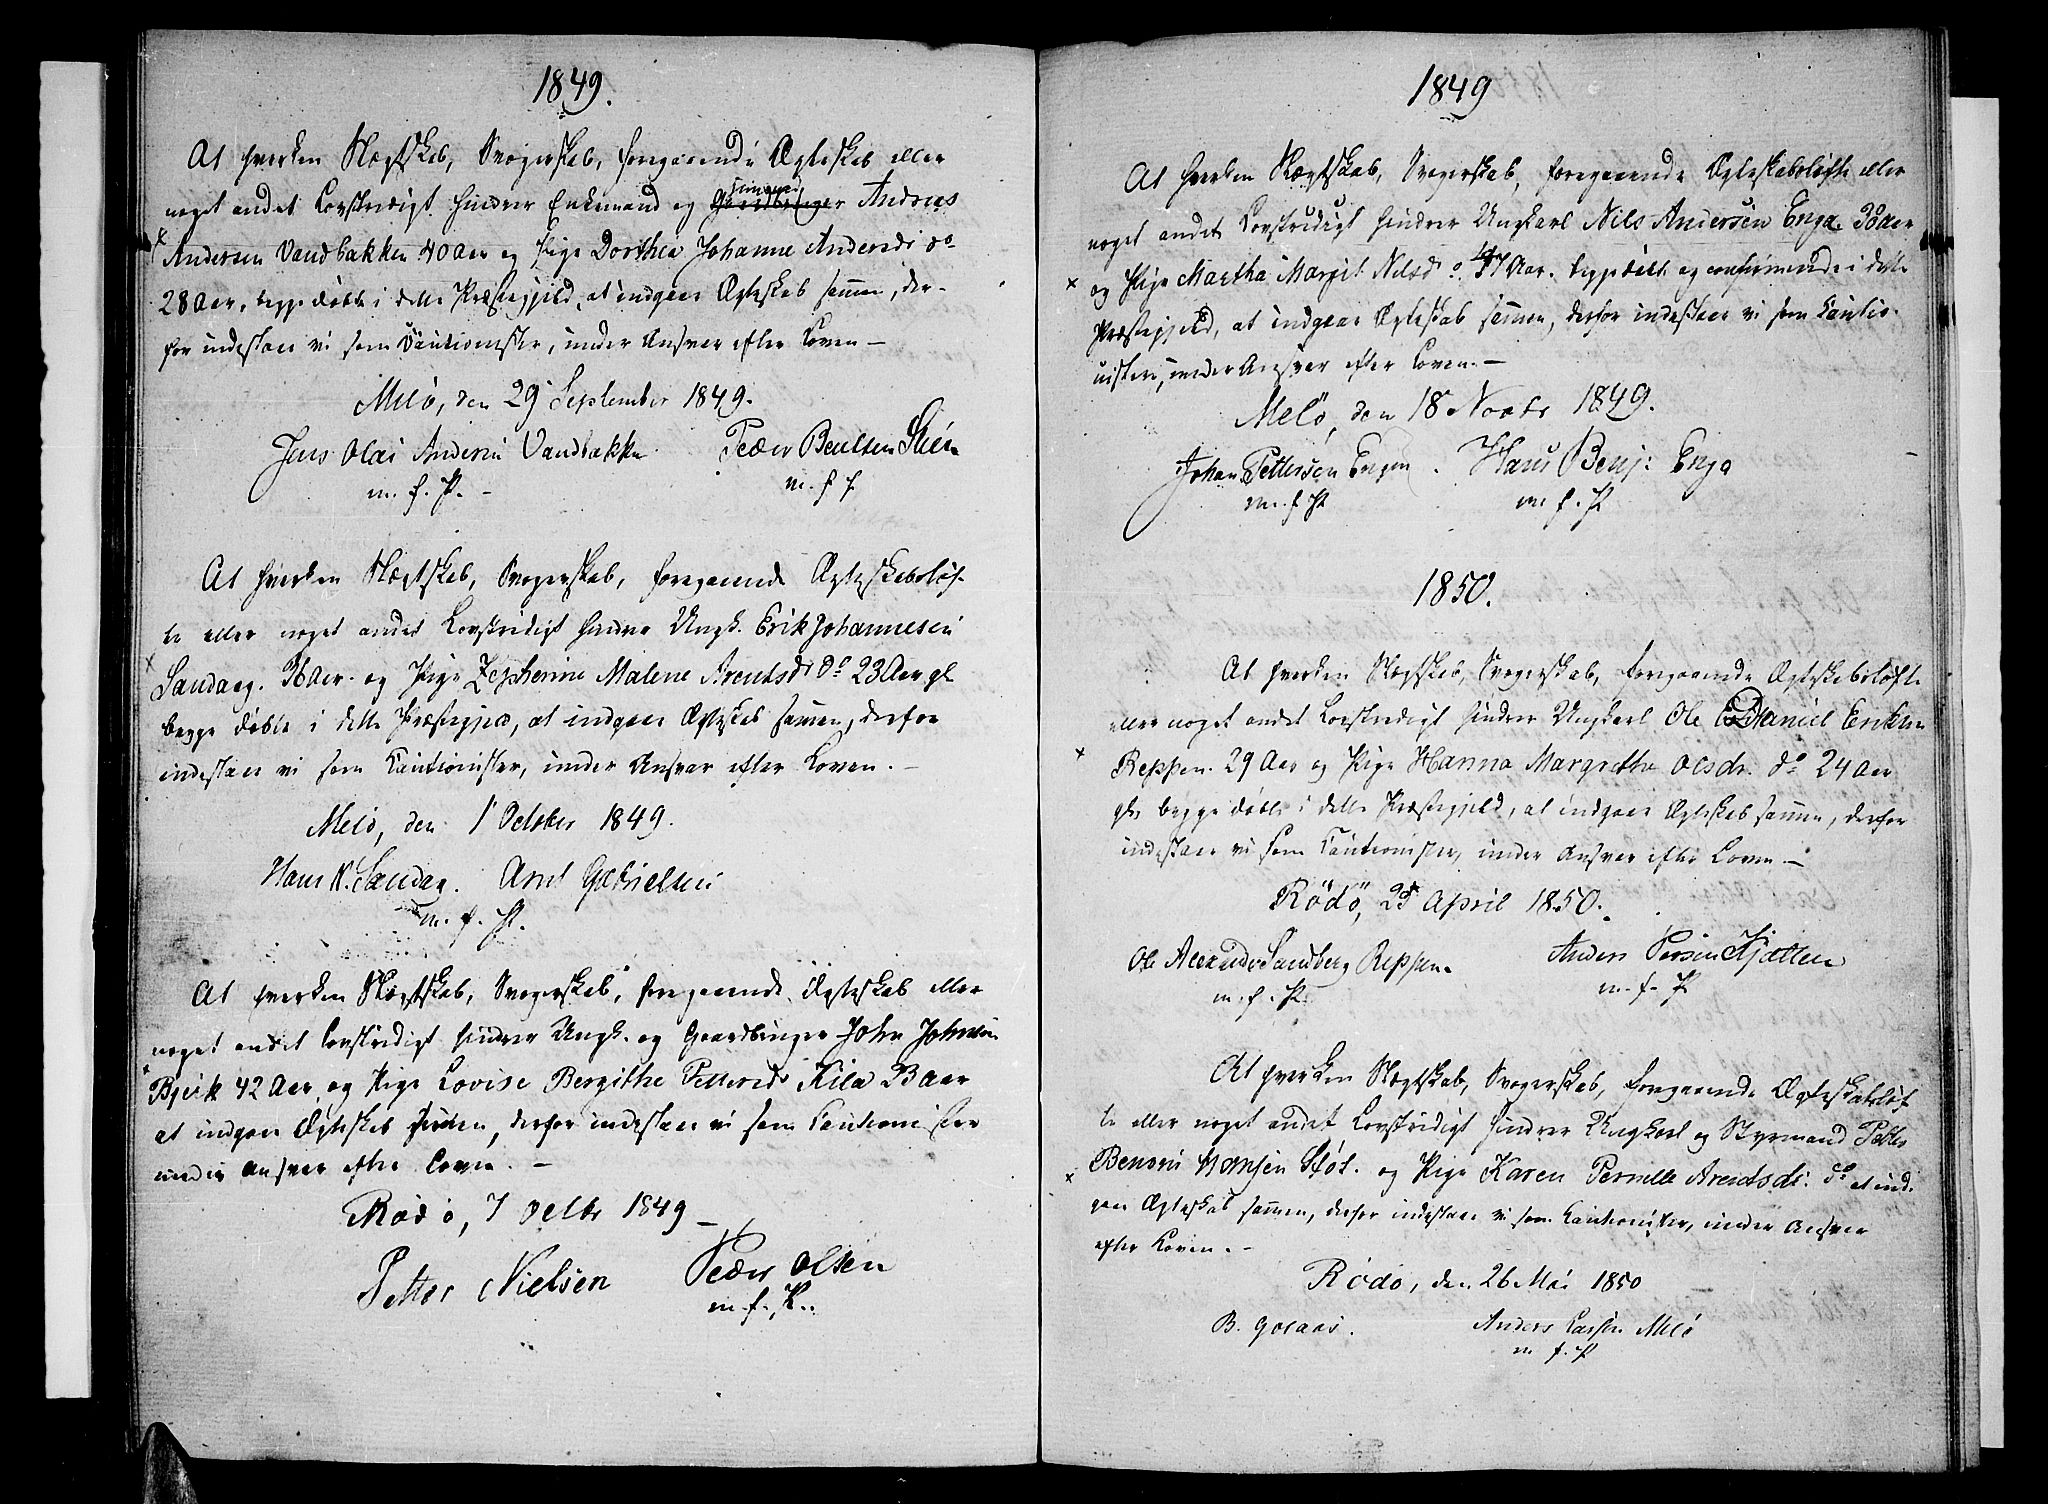 1849.
At hverken Slægtskab, Svogerskab, foregaaende Ægteskab eller
noget andet Lovstridigt hindrer Enkemand og Andreas
Andersen Vandbakken 40 Aar og Pige Dorthea Johanne Andersdr do
28 Aar, begge døbte i dette Præstegjeld, at indgaae Ægteskab sammen, der-
for indestaae vi som Cautionister, under Ansvar efter Loven —
Melö, den 29 September 1849.
Jens Olai Andersen Vandbakken Peder Bentsen
m. f. P. - m. f. P.
At hverken Slægtskab, Svogerskab, foregaaende Ægteskabsløf-
te eller noget andet Lovstridigt hindre Ungk. Erik Johannesen
Sandaag. Aar. og Pige Zepherine Malene Arentsdr do 23 Aar gl
begge døbte i dette Præstegjeld, at indgaae Ægteskab sammen, derfor
indestaae vi som Cautionister, under Ansvar efter Loven. —
Melö, den 1 October 1849.
Hans N. Sandaag. Arnt Gabrielsen
m. f. P.
At hverken Slægtskab, Svogerskab, foregaaende Ægteskab eller
noget andet Lovstridigt hindrer Ungk. og Gaardbruger John Johnsen
Bjerk 42 Aar, og Pige Lovise Bergithe Pettersdr Kila Aar
at indgaae Ægteskab sammen, derfor indestaae vi som Cautionister
under Ansvar efter Loven. —
Rødø, 7 Octbr 1849 —
Petter Nielsen Peder Olsen
m. f. P.
1849
At hverken Slægtskab, Svogerskab, foregaaende Ægteskabsløfte eller
noget andet Lovstridigt hindrer Ungkarl Nils Andersen Enga. Aar
og Pige Martha Margit Nilsd do Aar. begge døbte og confirmerede i dette
Præstegjeld, at indgaae Ægteskab sammen, derfor indestaae vi som Cautio-
nister, under Ansvar efter Loven. —
Melö, den 18 Novbr 1849.
Johan Pettersen Engen. Hans Benj: Enga
m. f. P. m. f. P.
1850.
At hverken Slægtskab, Svogerskab, foregaaende Ægteskabsløfte
eller noget andet Lovstridigt hindrer Ungkarl Ole Daniel Eriksen
Reppen. 29 Aar og Pige Hanna Margretha Olsdr. do 24 Aar
gl. begge døbte i dette Præstegjeld, at indgaae Ægteskab sammen, derfor
indestaae vi som Cautionister, under Ansvar efter Loven —
Rödö, April 1850.
Ole Alexander Sandberg Reppen. Anders Persen Kjølien
m. f. P. m. f. P.
At hverken Slægtskab, Svogerskab, foregaaende Ægteskabsløf
te eller noget andet Lovstridigt hindrer Ungkarl og Styrmand Petter
Benoni Hansen Støt. og Pige Karen Pernille Arentsdr. do at ind-
gaae Ægteskab sammen, derfor indestaae vi som Cautionister, under Ansvar
efter Loven. —
Rödö, den 26 Mai 1850
B. Golaas. Anders Larsen Melö
m. f. P.